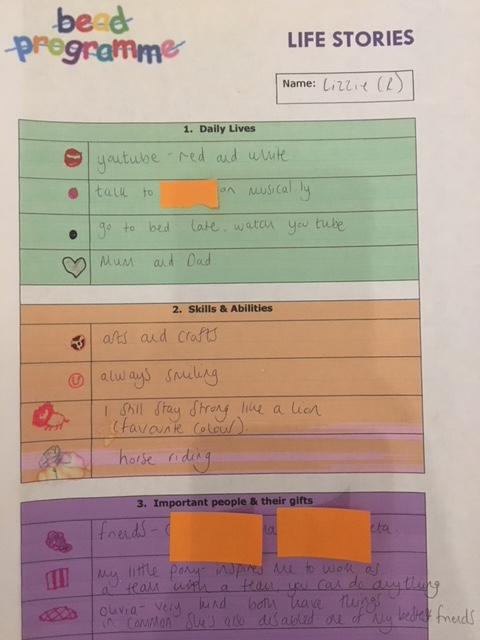 bead
programme
LIFE STORIES
Name: Lizzie (R)
1. Daily Lives
youtube - red and white
talk to on musically
go to bed late. watch you tube
Mum and Dad
2. Skills & Abilities
arts and crafts
always smiling
I still stay strong like a lion
(favourite colour).
horse riding
3. Important people & their gifts
friends -
My little pony - inspires me to work as
a team with a team you can do anything
olivia - very kind both have things
in common she's also disabled one of my bestest friends